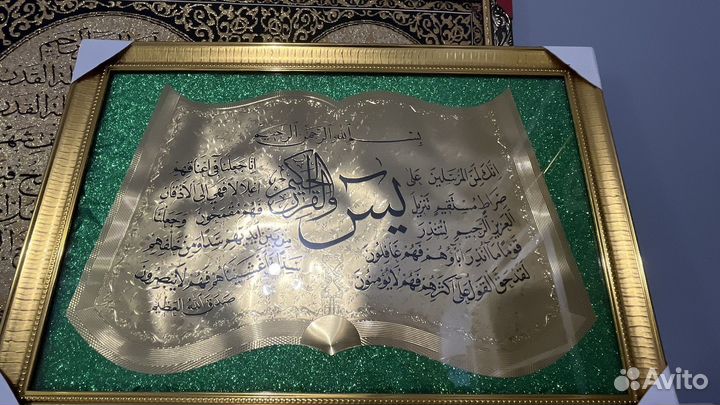 بسم الله الرحمن الرحيم
يس
والقرآن الحكيم
إنك لمن المرسلين على
صراط مستقيم تنزيل
العزيز الرحيم لتنذر
قوما ما أنذر آباؤهم فهم غافلون
لقد حق القول على أكثرهم فهم لا يؤمنون
إنا جعلنا في أعناقهم
أغلالا فهي إلى الأذقان
فهم مقمحون وجعلنا
من بين أيديهم سدا ومن خلفهم
سدا فأغشيناهم فهم لا يبصرون
صدق الله العظيم
Avito